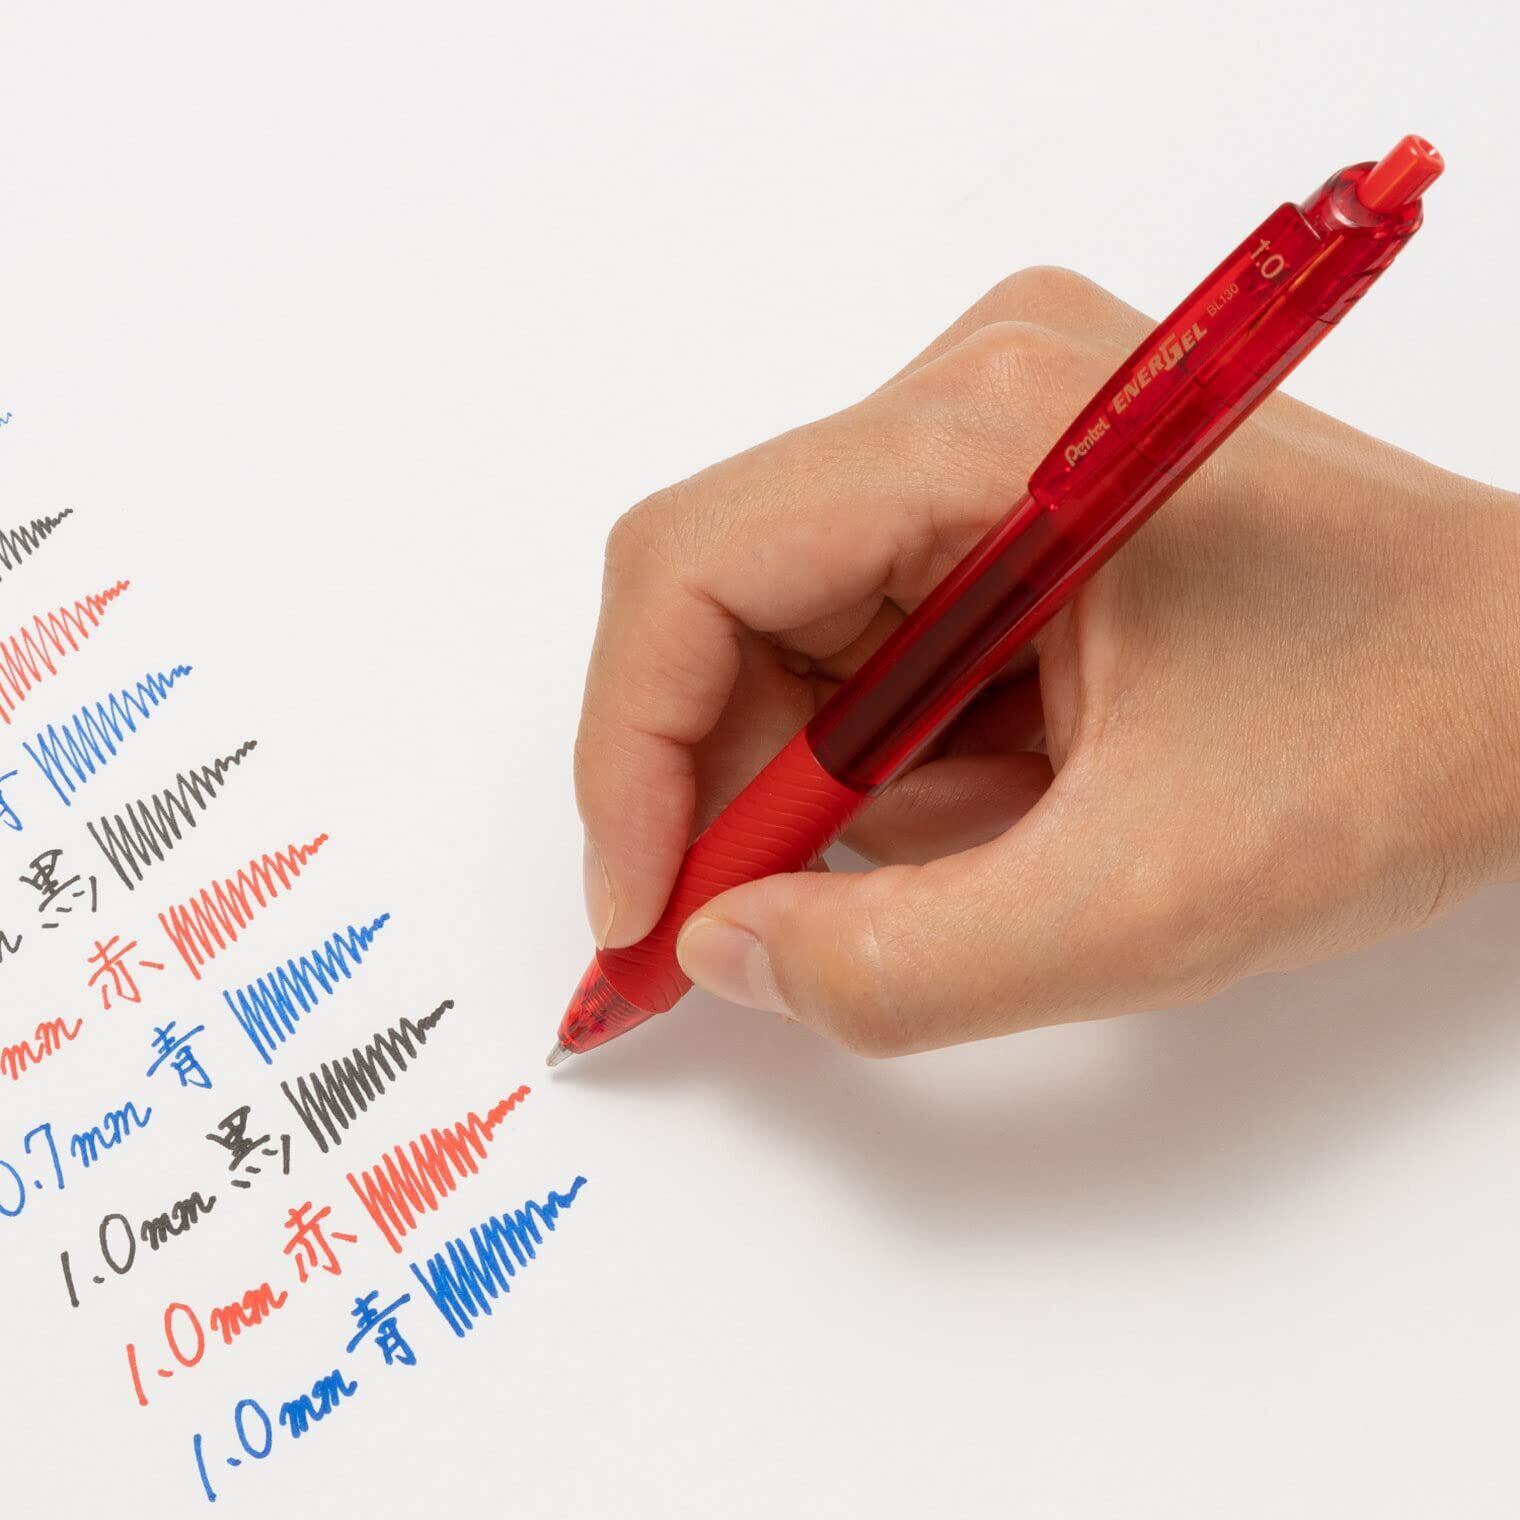 青
黒
mm 赤
0.7mm 青
1.0mm 黒
1.0mm 赤
1.0mm 青
Pentel ENERGEL BL130
1.0